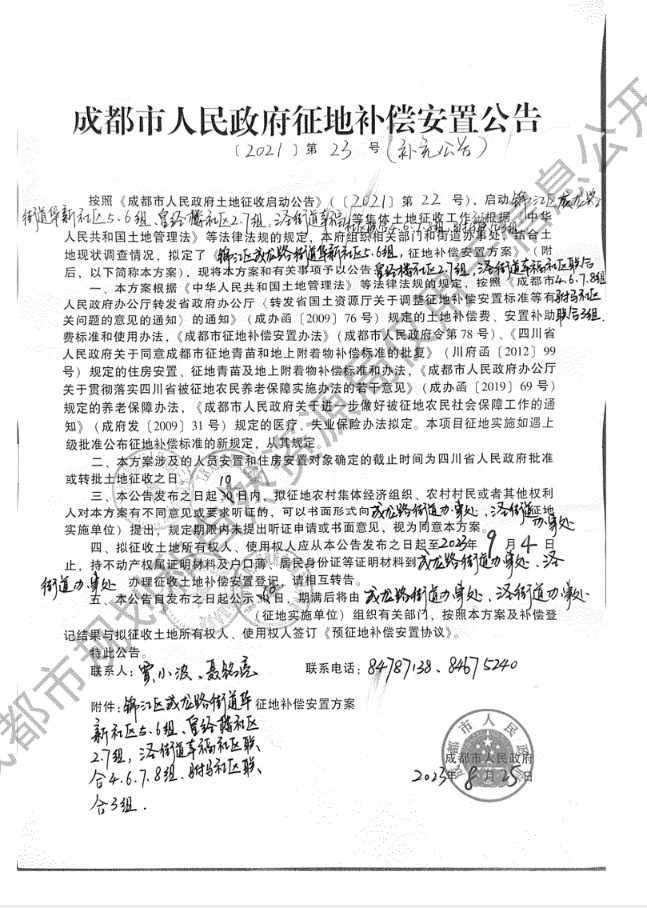 成都市人民政府征地补偿安置公告
〔2021〕第 23 号（补充公告）
按照《成都市人民政府土地征收启动公告》（〔2021〕第 22 号），启动锦江区成龙路
街道华新社区5.6组、皇经楼社区2.7组，等集体土地征收工作。根据《中华
人民共和国土地管理法》等法律法规的规定，本府组织相关部门和街道办事处，结合土
地现状调查情况，拟定了《锦江区成龙路街道华新社区5.6组，征地补偿安置方案》（附
后，以下简称本方案），现将本方案和有关事项予以公告 皇经楼社区2.7组，
一、本方案根据《中华人民共和国土地管理法》等法律法规的规定，按照《成都市 4.6.7.8组
人民政府办公厅转发省政府办公厅〈转发省国土资源厅关于调整征地补偿安置标准等有
关问题的意见的通知〉的通知》（成办函〔2009〕76 号）规定的土地补偿费、安置补助
费标准和使用办法，《成都市征地补偿安置办法》（成都市人民政府令第 78 号）、《四川省
人民政府关于同意成都市征地青苗和地上附着物补偿标准的批复》（川府函〔2012〕99
号）规定的住房安置、征地青苗及地上附着物补偿标准和办法，《成都市人民政府办公厅
关于贯彻落实四川省被征地农民养老保障实施办法的若干意见》（成办函〔2019〕69 号）
规定的养老保障办法，《成都市人民政府关于进一步做好被征地农民社会保障工作的通
知》（成府发〔2009〕31 号）规定的医疗、失业保险办法拟定。本项目征地实施如遇上
级批准公布征地补偿标准的新规定，从其规定。
二、本方案涉及的人员安置和住房安置对象确定的截止时间为四川省人民政府批准
或转批土地征收之日。
三、本公告发布之日起10日内，拟征地农村集体经济组织、农村村民或者其他权利
人对本方案有不同意见或要求听证的，可以书面形式向成龙路街道办事处、街道办事处（征地
实施单位）提出，规定期限内未提出听证申请或书面意见，视为同意本方案。
四、拟征收土地所有权人、使用权人应从本公告发布之日起至2023年9月4日
止，持不动产权属证明材料及户口簿、居民身份证等证明材料到成龙路街道办事处、
街道办事处 办理征收土地补偿安置登记，请相互转告。
五、本公告自发布之日起公示 日，期满后将由 成龙路街道办事处、街道办事处
（征地实施单位）组织有关部门，按照本方案及补偿登
记结果与拟征收土地所有权人、使用权人签订《预征地补偿安置协议》。
特此公告。
联系人：贾小波、 联系电话：84787138、84675240
附件：锦江区成龙路街道华 征地补偿安置方案
新社区5.6组、皇经楼社区
2.7组，街道幸福社区联
合4.6.7.8组、社区联
合3组.
成都市人民政府
2023年8月25日
成都市规划和自然资源局仅用于信息公开